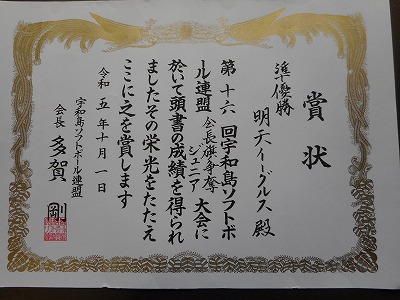 賞状
準優勝
明天イーグルス殿
第十六回宇和島ソフトボ
ール連盟会長旗争奪ジュニア大会に
於いて頭書の成績を得られ
ましたその栄光をたたえ
ここに之を賞します
令和五年十月一日
宇和島ソフトボール連盟
会長 多賀 剛